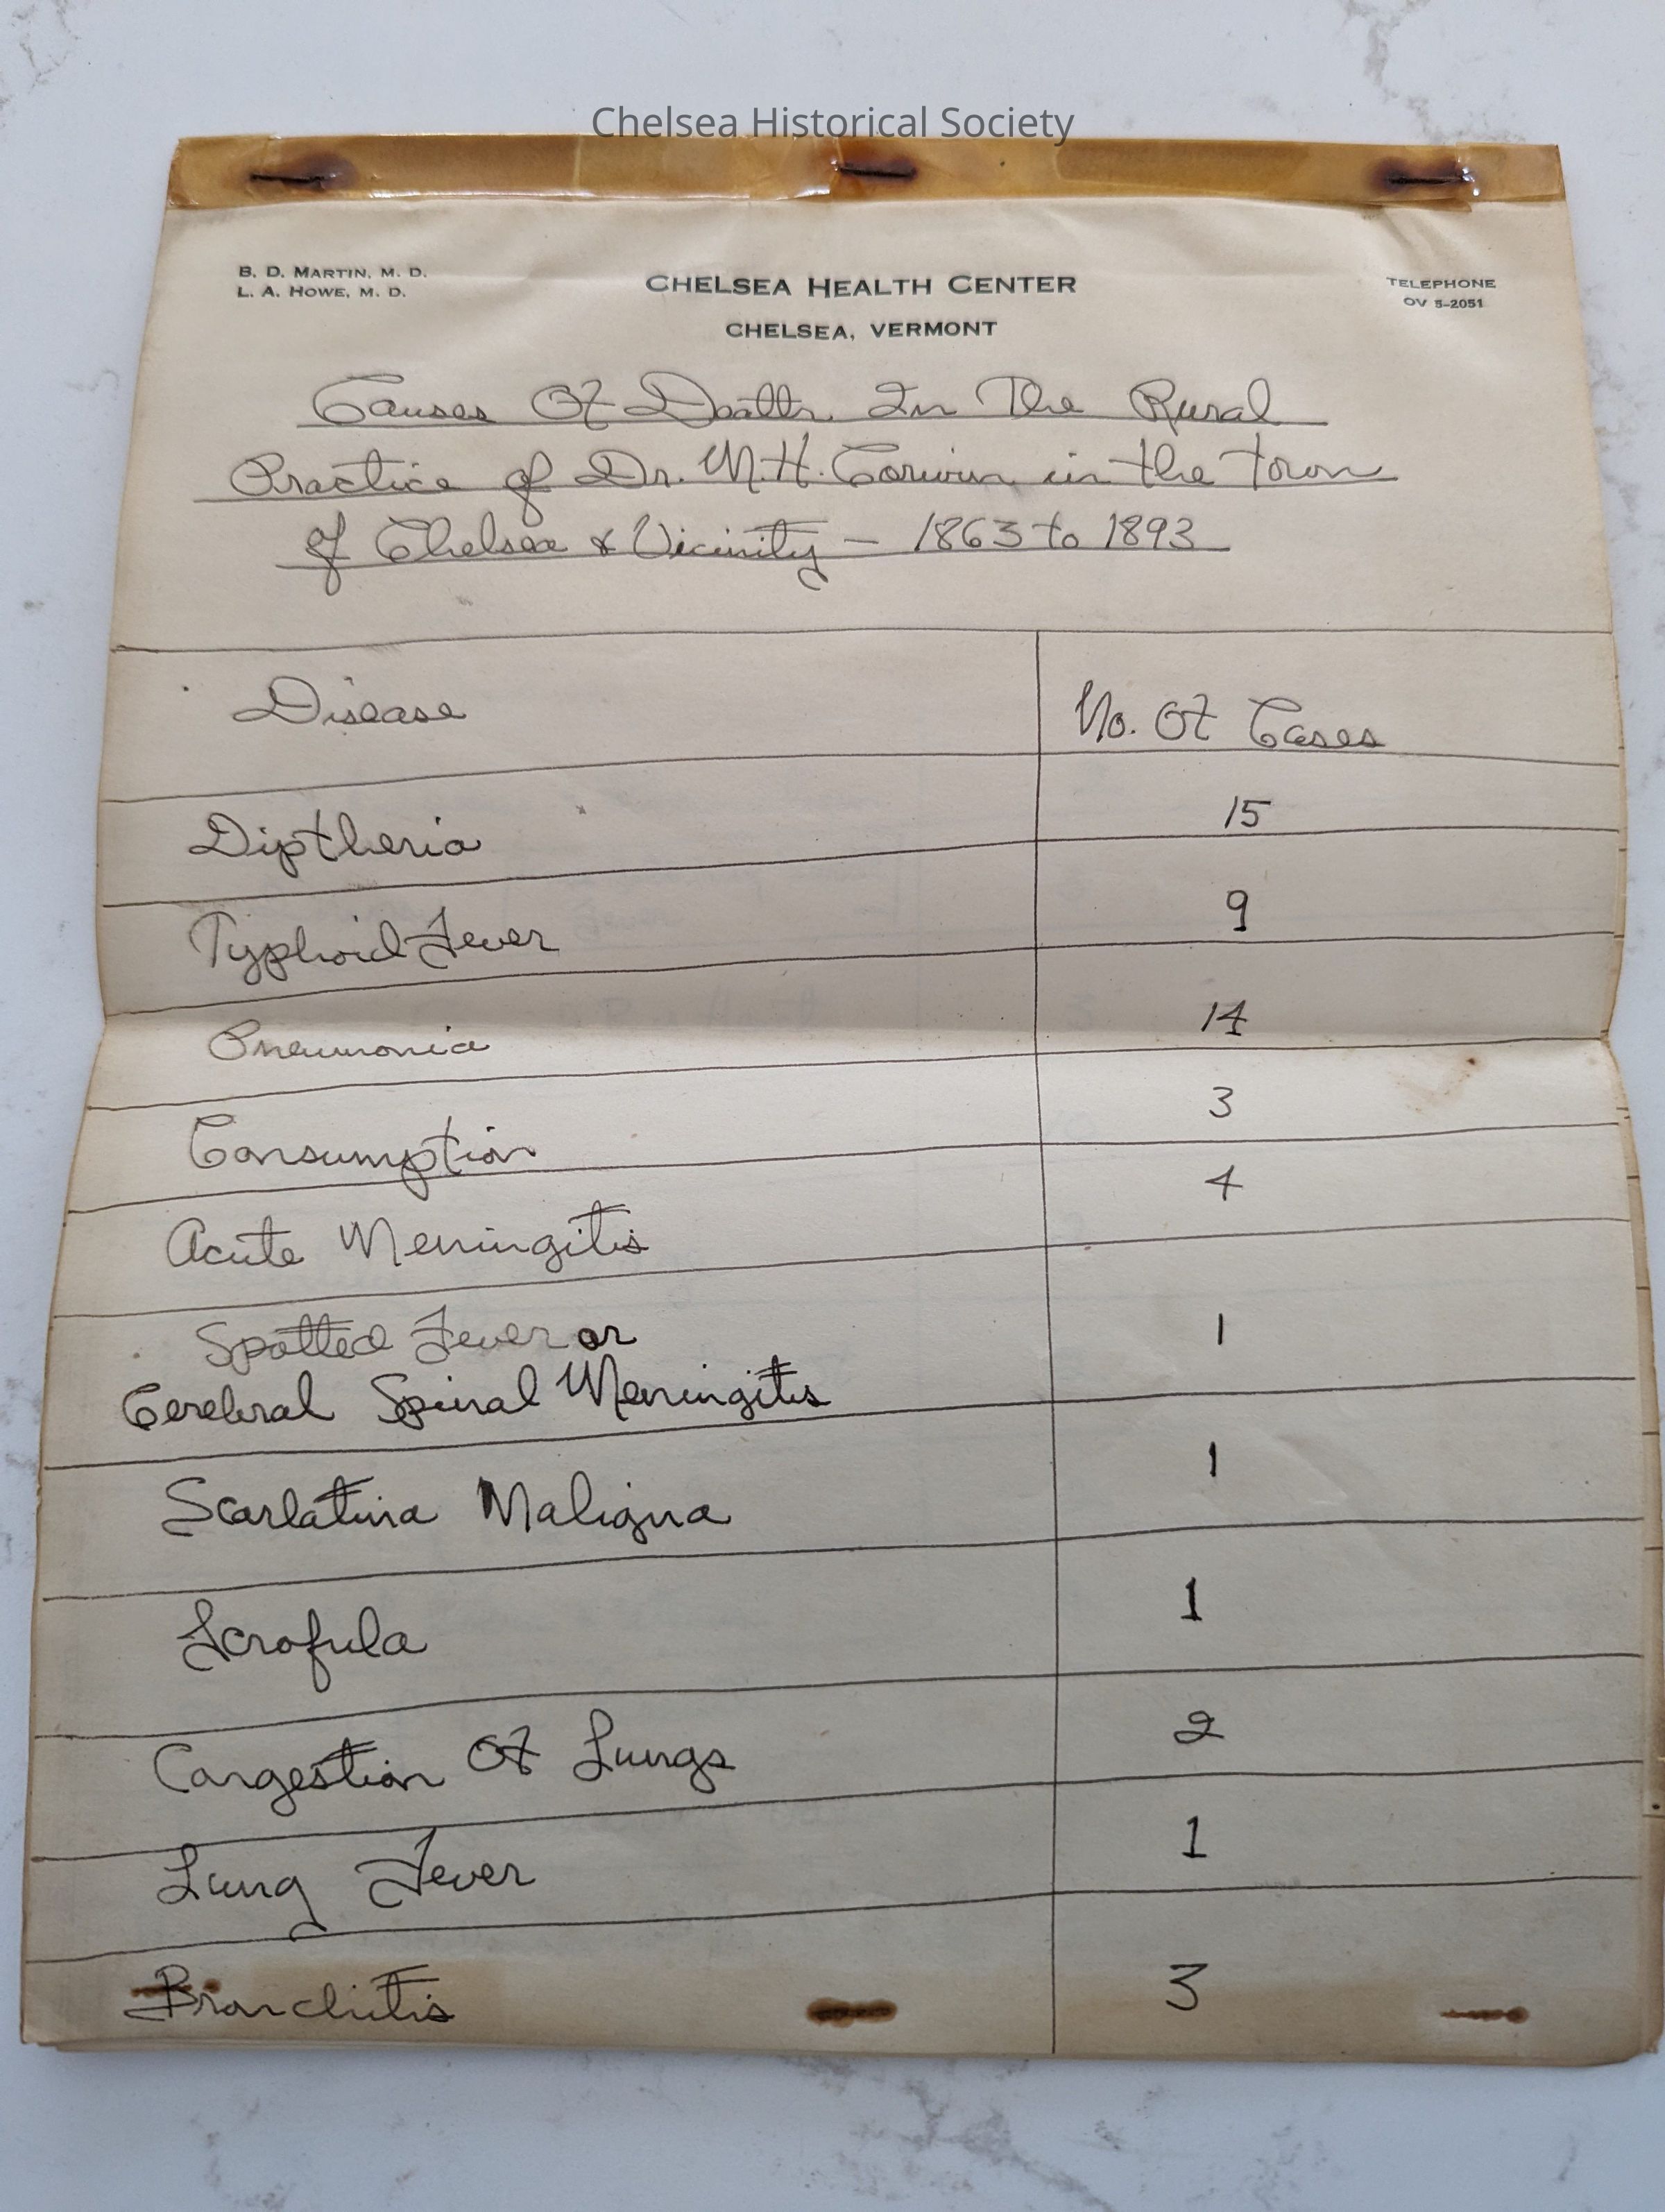 Chelsea Historical Society
B. D. MARTIN, M. D.
L. A. HOWE, M. D.
CHELSEA HEALTH CENTER
CHELSEA, VERMONT
TELEPHONE
OV 5-2051
Causes Of Death In The Rural
Practice of Dr. W.H. Corwin in the town
of Chelsea & Vicinity – 1863 to 1893
Disease No. Of Cases
Diptheria 15
Typhoid Fever 9
Pneumonia 14
Consumption 3
Acute Meningitis 4
Spotted Fever or
Cerebral Spinal Meningitis 1
Scarlatina Maligna 1
Scrofula 1
Congestion Of Lungs 2
Lung Fever 1
Bronchitis 3